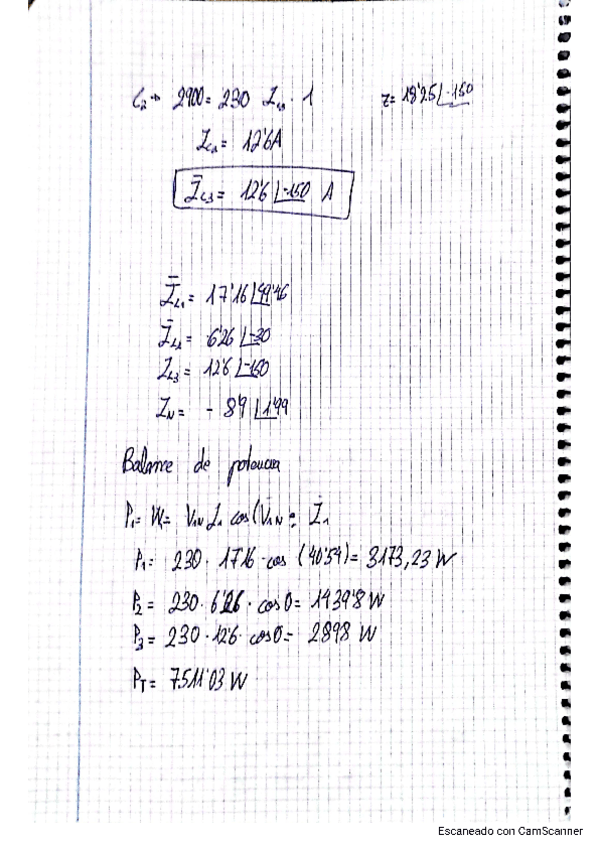 C₂→ 2900 = 230 I_L3 · 1 Z= 18'25∟-150
I_L3 = 12'6A
Ī_L3 = 12'6∟-150 A
Ī_L1 = 17'16∟49'46
Ī_L2 = 6'26∟-30
I_L3 = 12'6∟-150
I_N = - 8'9∟1'99
Balance de potencia
P₁= W= V₁N I₁ cos(V₁N : I₁
P₁= 230 · 17'16 · cos (40'54)= 3173,23 W
P₂ = 230 · 6'26 · cos 0= 1439'8 W
P₃ = 230 · 12'6 · cos 0= 2898 W
P_T = 7511'03 W
Escaneado con CamScanner